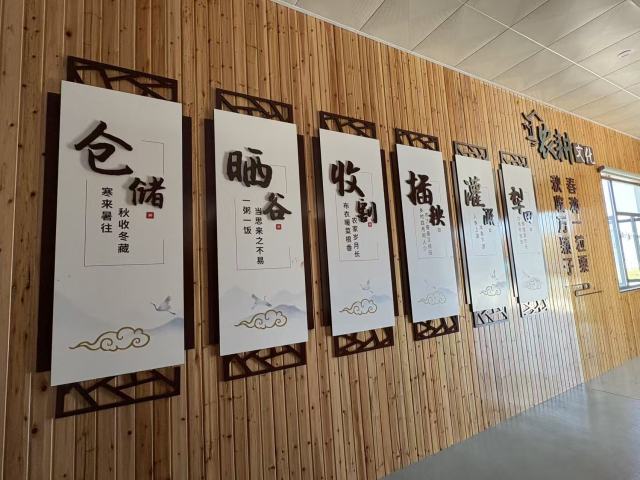 仓储
寒来暑往
秋收冬藏
晒谷
一粥一饭
当思来之不易
收割
布衣暖菜根香
农家岁月长
插秧
灌溉
犁田
农耕文化
春种一粒粟
秋收万颗子